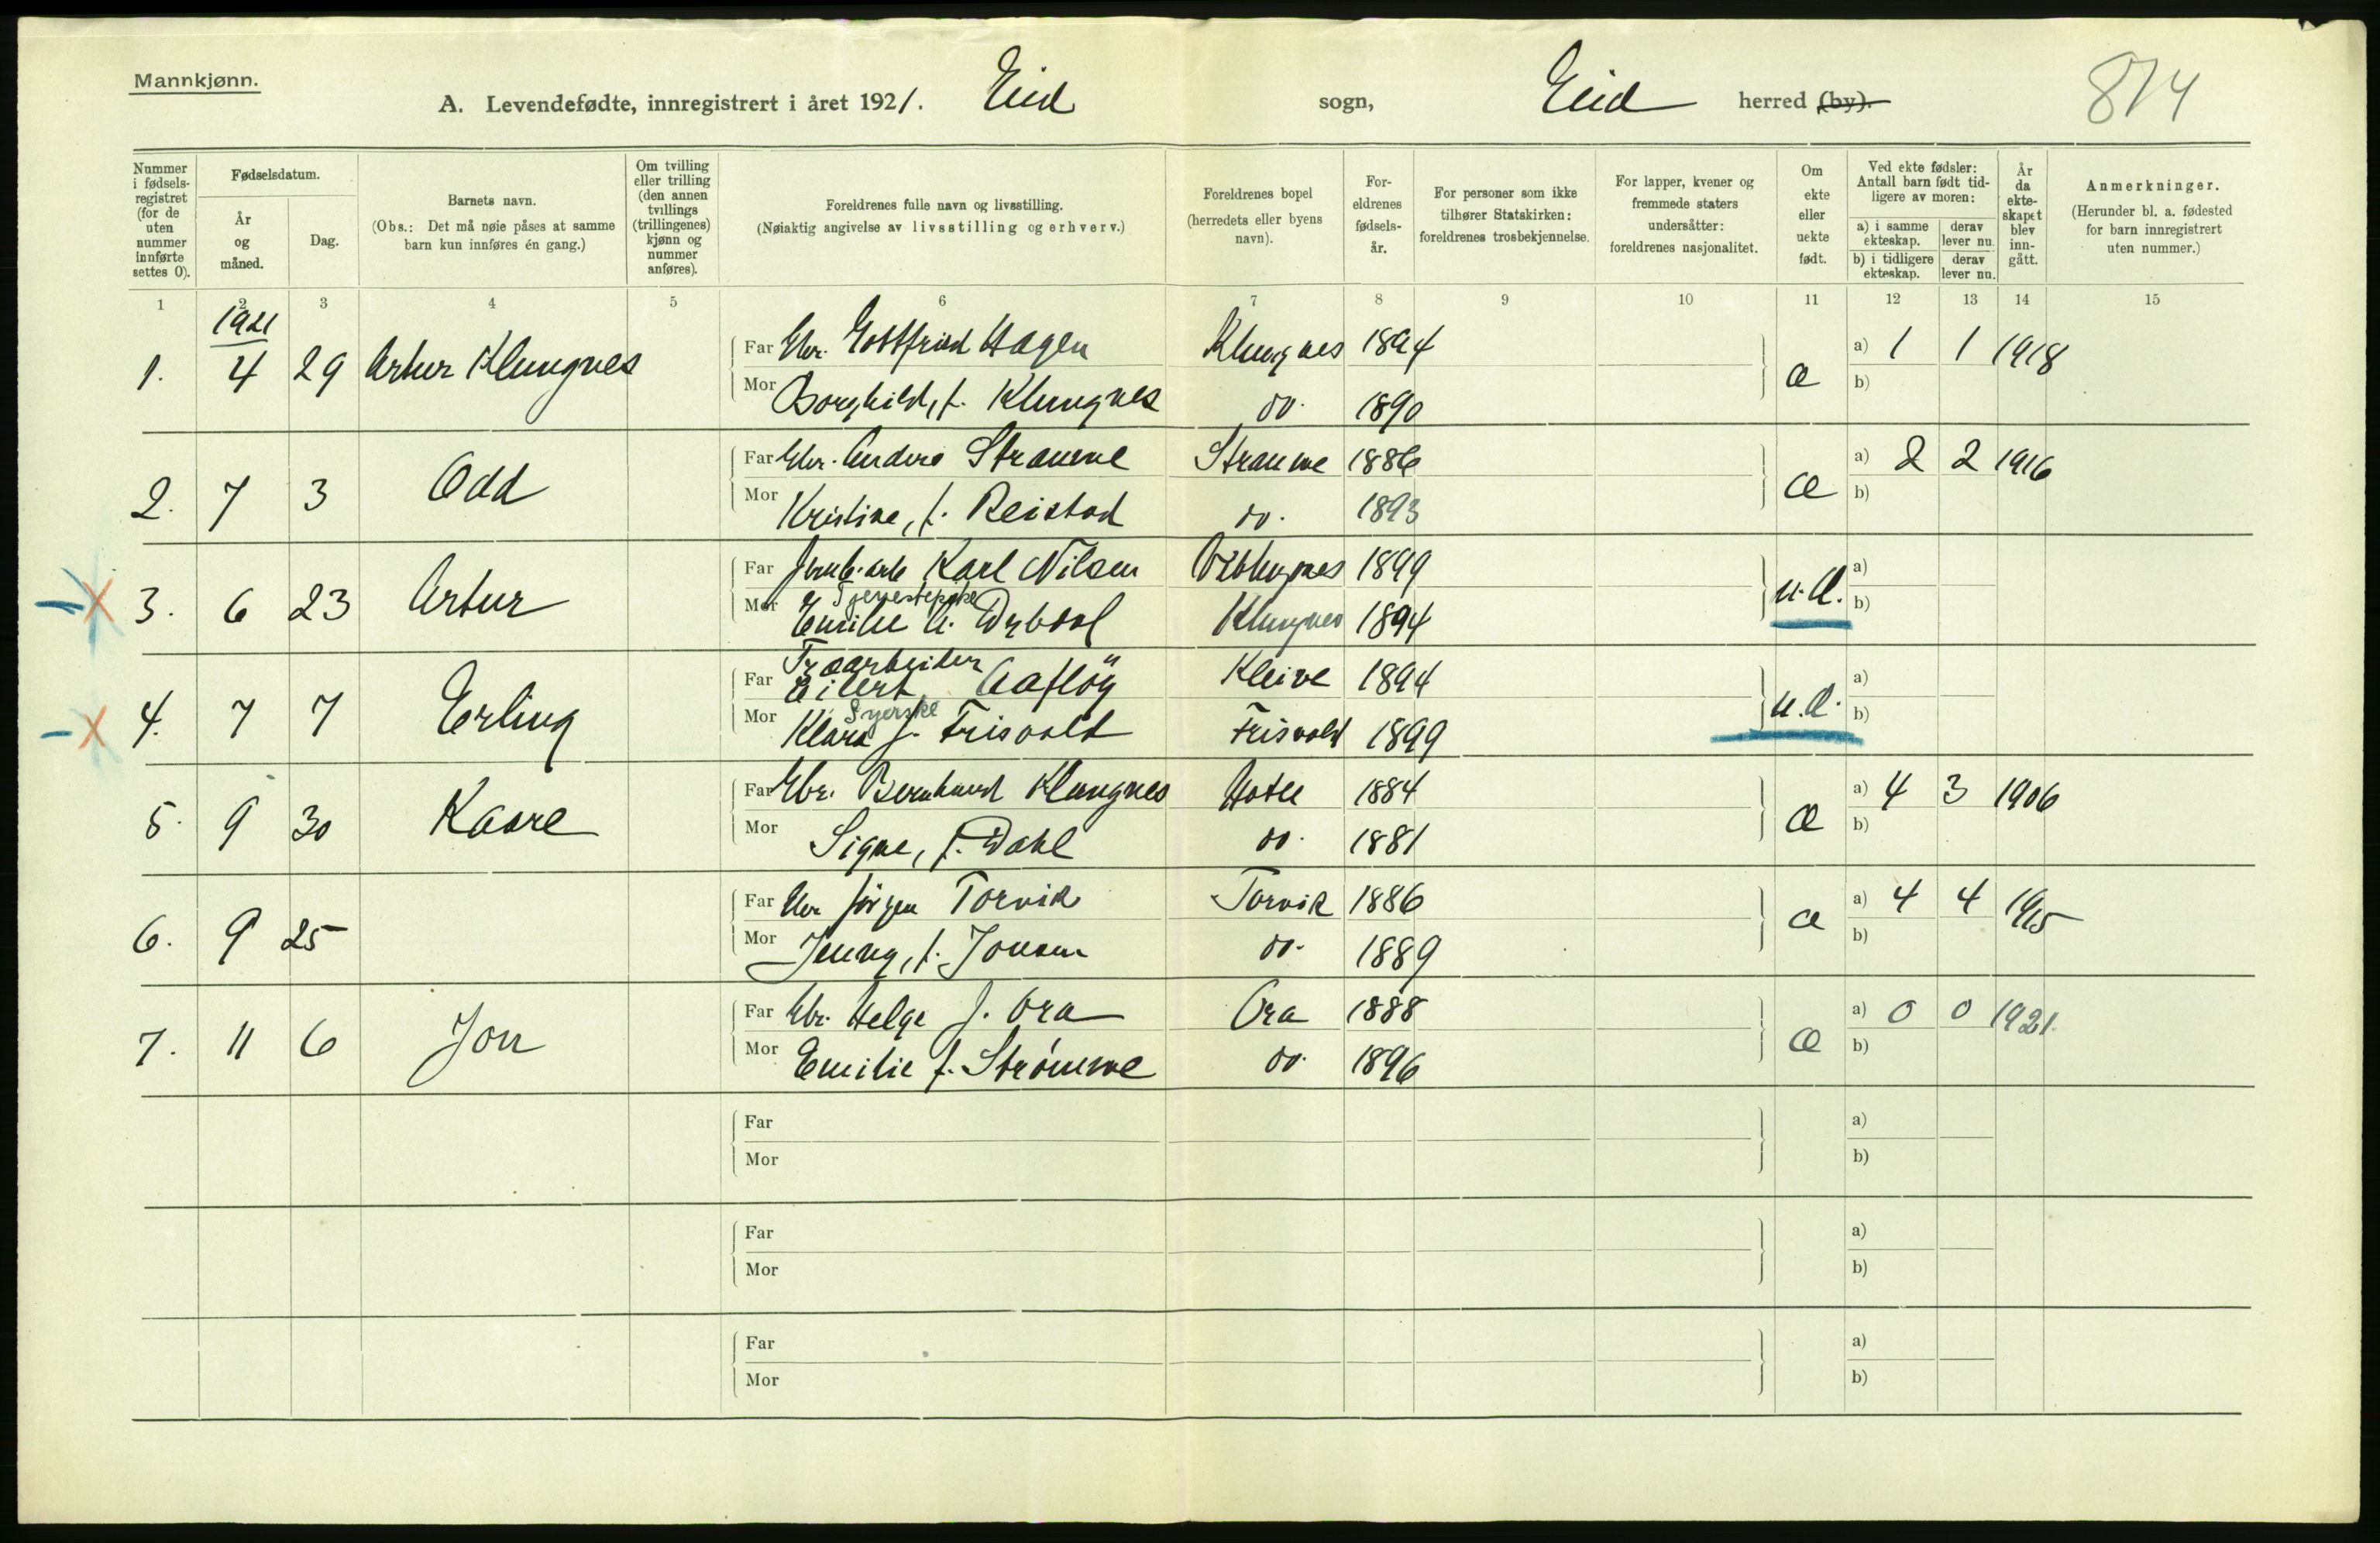 Mannkjønn.
A. Levendefødte, innregistrert i året 1921. Eid sogn, Eid herred (by).
814
Nummer i fødselsregistret (for de uten nummer innførte settes 0).
Fødselsdatum.
År og måned.
Dag.
Barnets navn.
(Obs.: Det må nøie påses at samme barn kun innføres én gang.)
Om tvilling eller trilling (den annen tvillings (trillingenes) kjønn og nummer anføres).
Foreldrenes fulle navn og livsstilling.
(Nøiaktig angivelse av livsstilling og erhverv.)
Foreldrenes bopel (herredets eller byens navn).
Foreldrenes fødselsår.
For personer som ikke tilhører Statskirken: foreldrenes trosbekjennelse.
For lapper, kvener og fremmede staters undersåtter: foreldrenes nasjonalitet.
Om ekte eller uekte født.
Ved ekte fødsler: Antall barn født tidligere av moren:
a) i samme ekteskap.
derav lever nu.
b) i tidligere ekteskap.
derav lever nu.
År da ekteskapet blev inngått.
Anmerkninger.
(Herunder bl. a. fødested for barn innregistrert uten nummer.)
1 2 3 4 5 6 7 8 9 10 11 12 13 14 15
1921
1. 4 29 Artur Klungnes
Far Gbr. Gottfried Hagen Klungnes 1894
Mor Borghild, f. Klungnes do. 1890
æ a) 1 1 1918
b)
2. 7 3 Odd
Far Gbr. Anders Straume Straume 1886
Mor Kristine, f. Reistad do. 1893
æ a) 2 2 1916
b)
3. 6 23 Artur
Far Karl Nilsen 1899
Tjenestepike
Mor Emilie Klungnes 1894
u.æ. a)
b)
Træarbeider
4. 7 7 Erling
Far Eilert Aafløy Kleive 1894
Syerske
Mor Klara f. Frisvold Frisvold 1899
u.æ. a)
b)
5. 9 30 Kaare
Far Gbr. Bernhard Klungnes 1884
Mor Signe, f. Dahl do. 1881
æ a) 4 3 1906
b)
6. 9 25
Far Gbr Jørgen Torvik Torvik 1886
Mor Jenny, f. Jonsen do. 1889
æ a) 4 4 1915
b)
7. 11 6 Jon
Far Gbr. Helge J. Ora Ora 1888
Mor Emilie f. Strømme do. 1896
æ a) 0 0 1921.
b)
Far a)
Mor b)
Far a)
Mor b)
Far a)
Mor b)